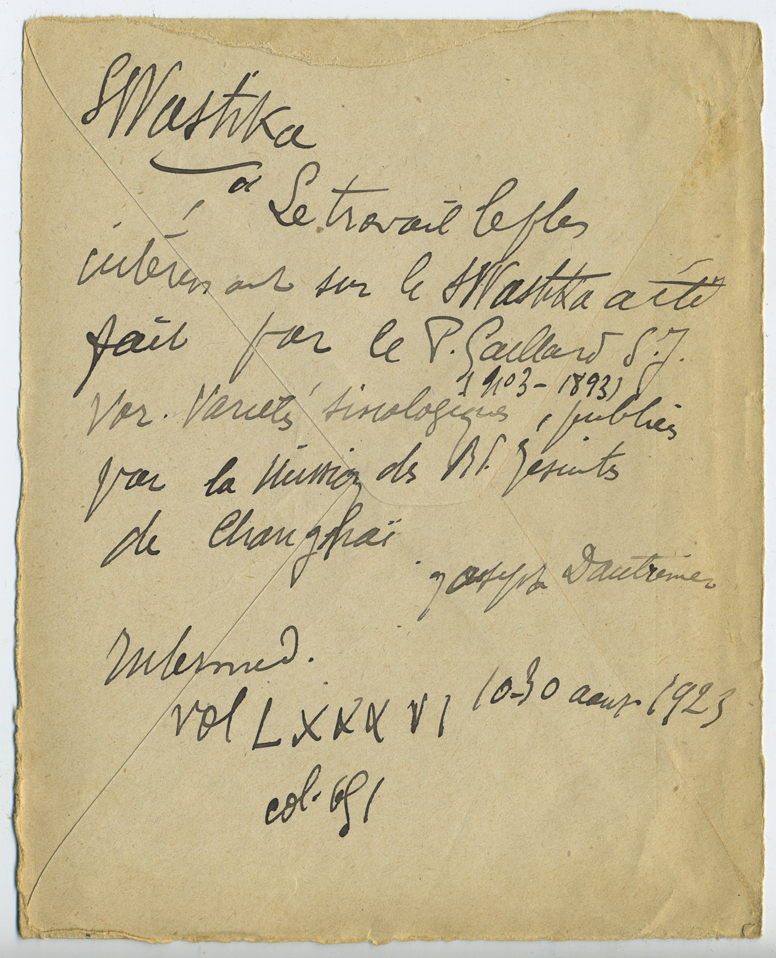 SWastika
a Le travail le plus
intéressant sur le SWastika a été
fait par le P. Gaillard S.J.
1893)
Voir. Varietés sinologiques, publiées
par la Mission des RP. Jésuites
de Changhaï
Joseph Dautremer
Intermed.
vol LXXXVI 10-30 aout 1923
col. 691